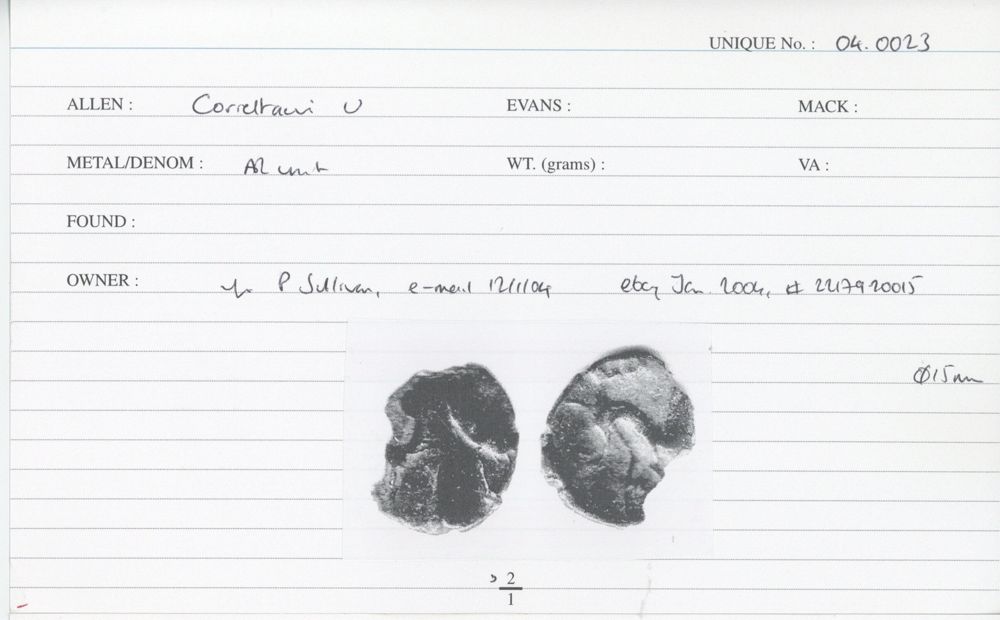 UNIQUE No. : 04.0023
ALLEN : Correltauvi U EVANS : MACK :
METAL/DENOM : AR unit WT. (grams) : VA :
FOUND :
OWNER : P Sullivan, e-mail 12/1/04 ebay Jan. 2004, # 2217920015
Ø15mm
2
1